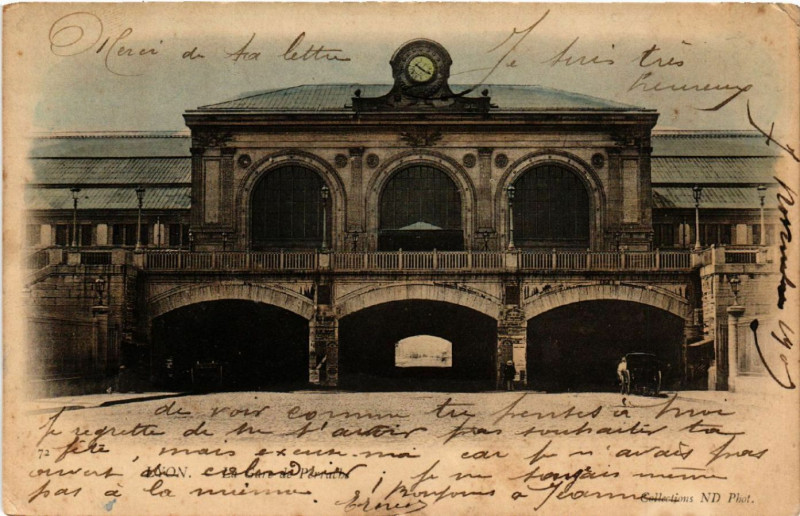 Merci de ta lettre
Je suis très
heureux
de voir comme tu penses à moi
Je regrette de ne t'avoir pas souhaiter ta
fête, mais excuse-moi car je n'avais pas
ouvert calendrier je ne songeais même
pas à la mienne. Bonjours à Jeanne
72 LYON. - La Gare de Perrache
Collections ND Phot.